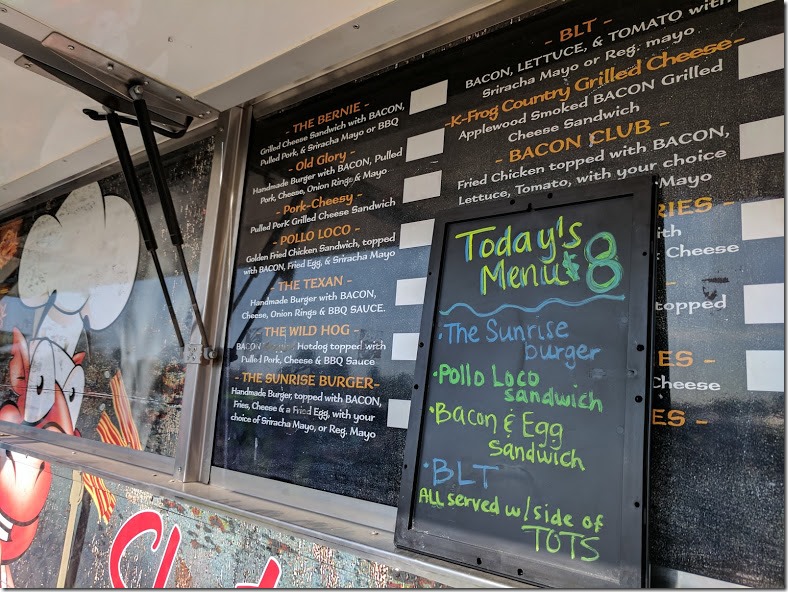 - THE BERNIE -
Grilled Cheese Sandwich with BACON,
Pulled Pork, & Sriracha Mayo or BBQ
- Old Glory -
Handmade Burger with BACON, Pulled
Pork, Cheese, Onion Rings & Mayo
- Pork-Cheesy -
Pulled Pork Grilled Cheese Sandwich
- POLLO LOCO -
Golden Fried Chicken Sandwich, topped
with BACON, Fried Egg, & Sriracha Mayo
- THE TEXAN -
Handmade Burger with BACON,
Cheese, Onion Rings & BBQ SAUCE.
- THE WILD HOG -
BACON Hotdog topped with
Pulled Pork, Cheese & BBQ Sauce
- THE SUNRISE BURGER-
Handmade Burger, topped with BACON,
Fries, Cheese & a Fried Egg, with your
choice of Sriracha Mayo, or Reg. Mayo
- BLT -
BACON, LETTUCE, & TOMATO with
Sriracha Mayo or Reg. mayo
-K-Frog Country Grilled Cheese-
Applewood Smoked BACON Grilled
Cheese Sandwich
- BACON CLUB -
Fried Chicken topped with BACON,
Lettuce, Tomato, with your choice
Mayo
RIES -
with
Cheese
-
topped
ES -
Cheese
ES -
Today's
Menu $8
• The Sunrise
burger
• Pollo Loco
sandwich
• Bacon & Egg
Sandwich
• BLT
ALL served w/ side of
TOTS